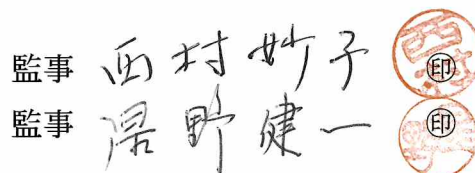 監事 西村妙子 ㊞
監事 野健一 ㊞